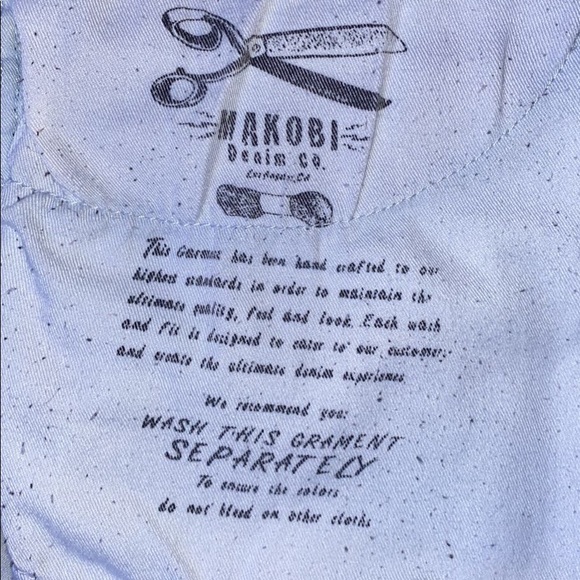 MAKOBI
Denim Co.
Los Angeles, CA
This Garment has been hand crafted to our
highest standards in order to maintain the
ultimate quality, feel and look. Each wash
and Fit is designed to cater to our customers
and create the ultimate denim experience
We recommend you:
WASH THIS GRAMENT
SEPARATELY
To ensure the colors
do not bleed on other cloths